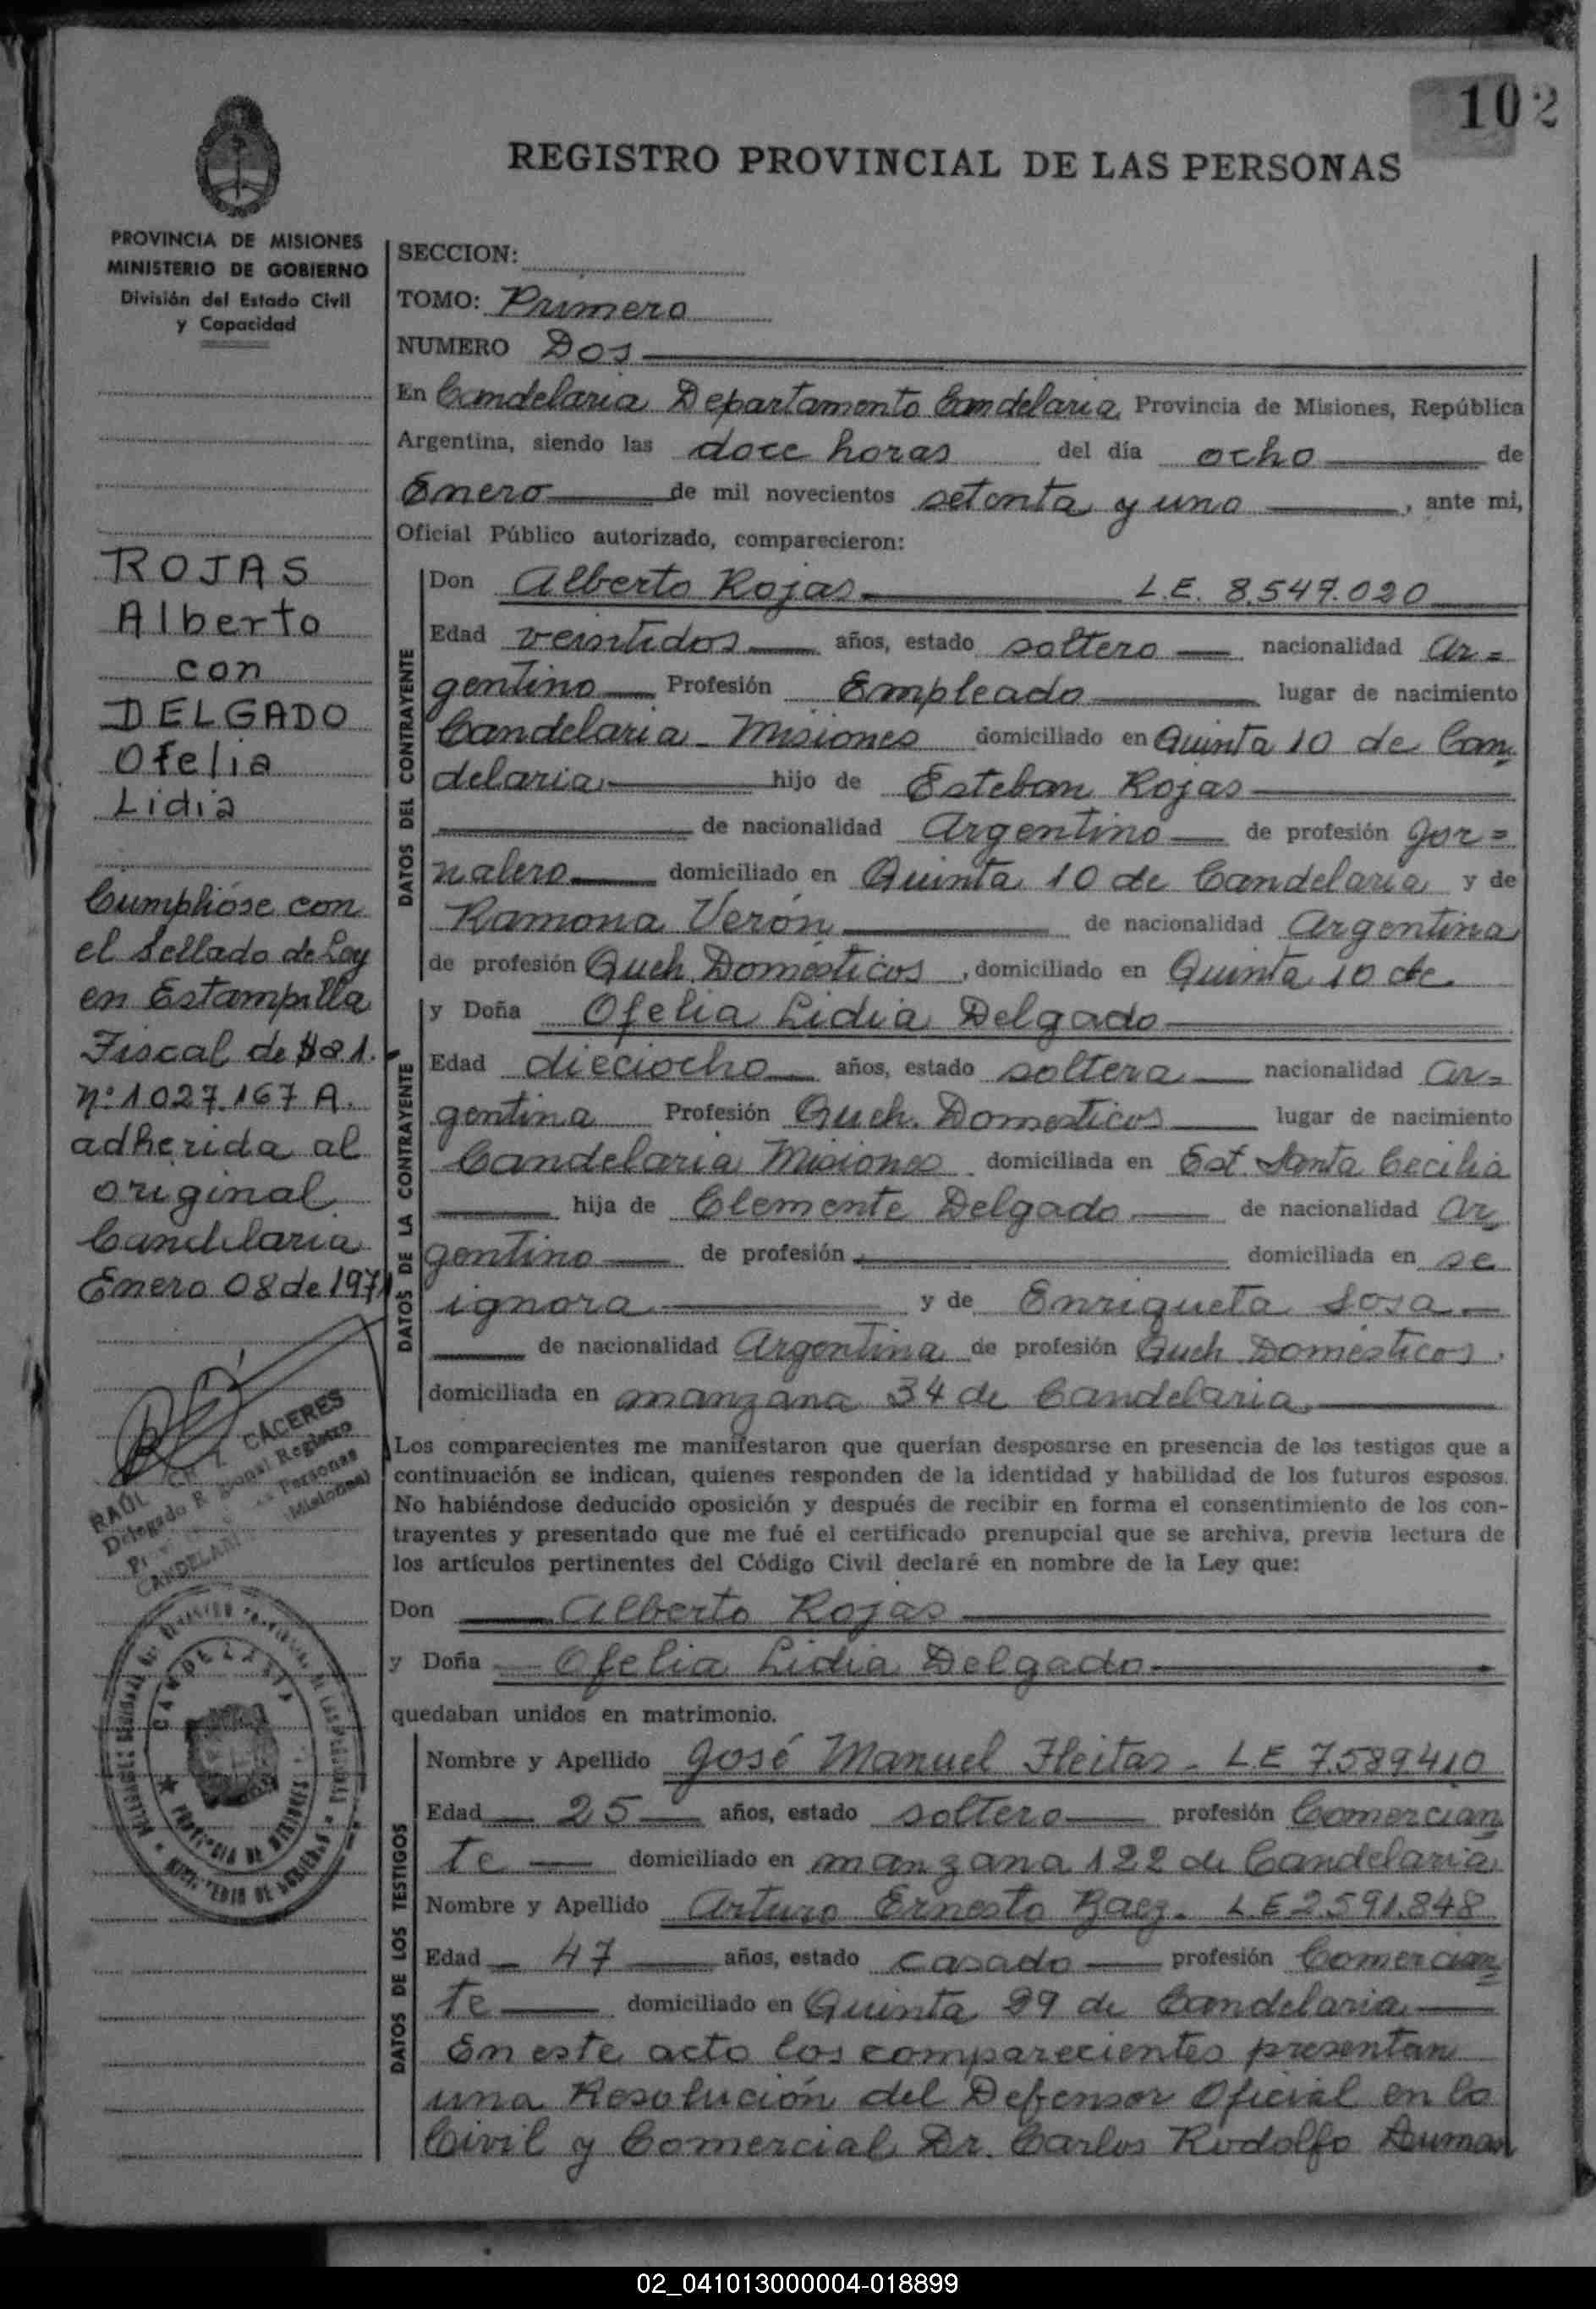 102
REGISTRO PROVINCIAL DE LAS PERSONAS
PROVINCIA DE MISIONES
MINISTERIO DE GOBIERNO
División del Estado Civil
y Capacidad
ROJAS
Alberto
con
DELGADO
Ofelia
Lidia
Cumplióse con
el Sellado de Ley
en Estampilla
Fiscal de $ 81.
nº 1027.167 A.
adherida al
original
Candelaria
Enero 08 de 1971
RAÚL CACERES
Delegado Registro
Personas
Misiones)
CANDELARIA
CANDELARIA
PROVINCIA DE MISIONES
MINISTERIO DE GOBIERNO
SECCION:
TOMO: Primero
NUMERO Dos
En Candelaria Departamento Candelaria Provincia de Misiones, República
Argentina, siendo las doce horas del día ocho de
Enero de mil novecientos setenta y uno, ante mi,
Oficial Público autorizado, comparecieron:
DATOS DEL CONTRAYENTE
Don Alberto Rojas L.E. 8.547.020
Edad veintidos años, estado soltero nacionalidad Ar=
gentino Profesión Empleado lugar de nacimiento
Candelaria - Misiones domiciliado en Quinta 10 de Can
delaria hijo de Esteban Rojas
de nacionalidad Argentino de profesión Jor=
nalero domiciliado en Quinta 10 de Candelaria y de
Ramona Verón de nacionalidad Argentina
de profesión Queh. Domésticos, domiciliado en Quinta 10 de
DATOS DE LA CONTRAYENTE
y Doña Ofelia Lidia Delgado
Edad dieciocho años, estado soltera nacionalidad Ar=
gentina Profesión Queh. Domesticos lugar de nacimiento
Candelaria Misiones domiciliada en Est. Santa Cecilia
hija de Clemente Delgado de nacionalidad Ar
gentino de profesión domiciliada en se
ignora y de Enriqueta Sosa
de nacionalidad Argentina de profesión Queh Domésticos,
domiciliada en manzana 34 de Candelaria
Los comparecientes me manifestaron que querían desposarse en presencia de los testigos que a
continuación se indican, quienes responden de la identidad y habilidad de los futuros esposos.
No habiéndose deducido oposición y después de recibir en forma el consentimiento de los con-
trayentes y presentado que me fué el certificado prenupcial que se archiva, previa lectura de
los artículos pertinentes del Código Civil declaré en nombre de la Ley que:
Don Alberto Rojas
y Doña Ofelia Lidia Delgado
quedaban unidos en matrimonio.
DATOS DE LOS TESTIGOS
Nombre y Apellido José Manuel Fleitas - L.E 7.589410
Edad 25 años, estado soltero profesión Comercian
te domiciliado en manzana 122 de Candelaria
Nombre y Apellido Arturo Ernesto Baez - L.E 2.591.848
Edad 47 años, estado casado profesión Comercian
te domiciliado en Quinta 99 de Candelaria
En este acto los comparecientes presentan
una Resolución del Defensor Oficial en lo
Civil y Comercial Dr. Carlos Rodolfo Duman
02_041013000004-018899